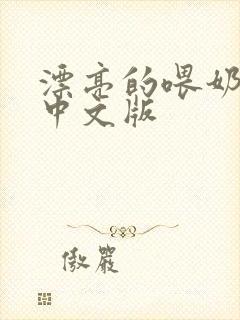 漂亮的喂奶
中文版
傲严